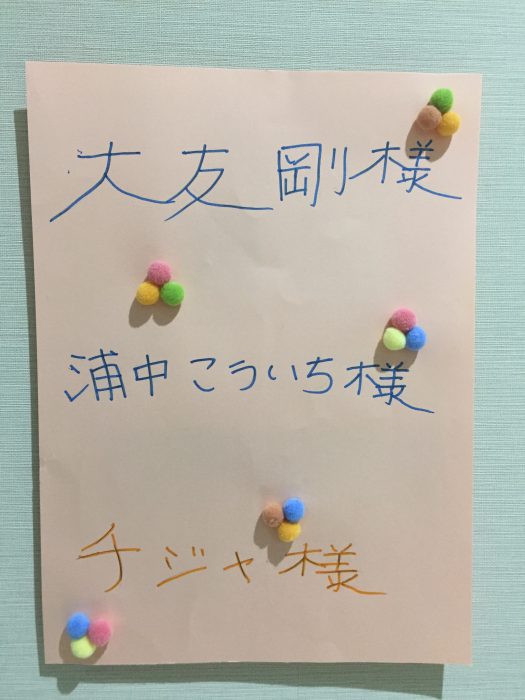 大友剛様
浦中こういち様
チジャ様